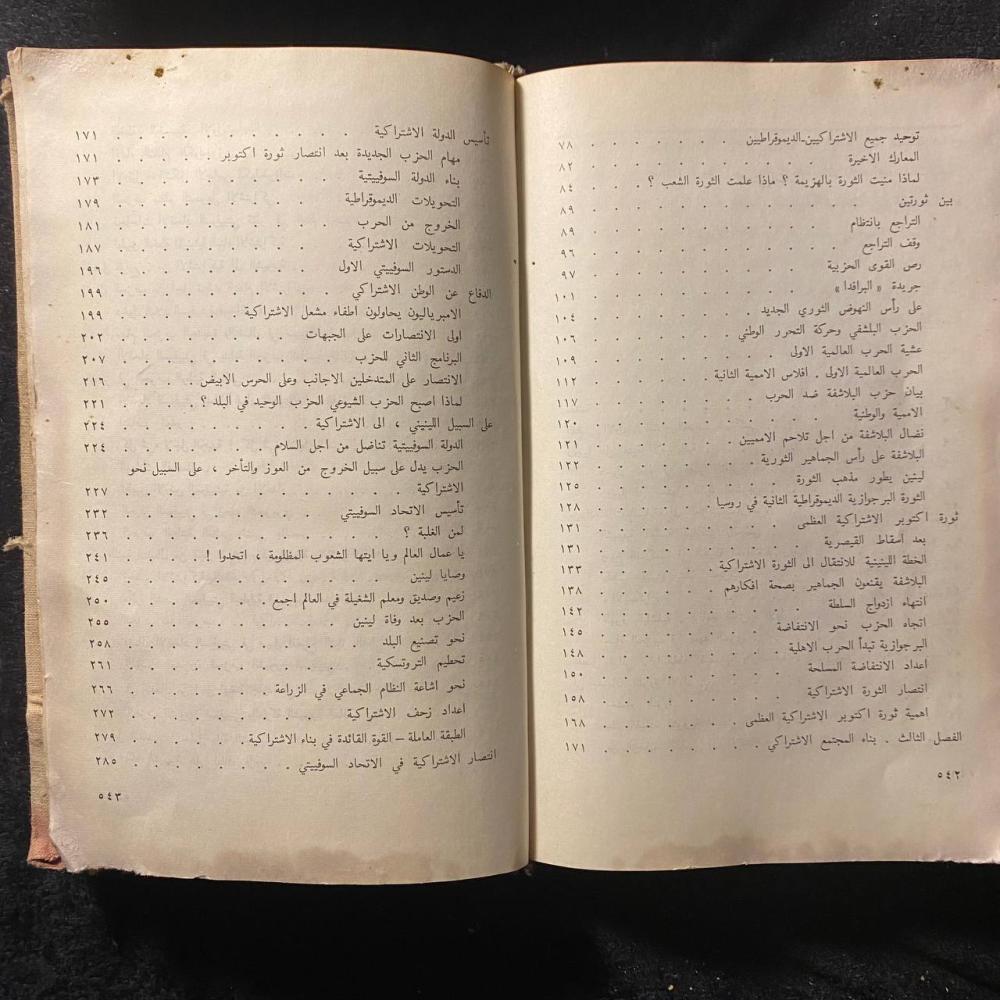 توحيد جميع الاشتراكيين-الديموقراطيين . . . . . . . ٧٨
المعارك الاخيرة . . . . . . . . . . . . ٨٢
لماذا منيت الثورة بالهزيمة ؟ ماذا علمت الثورة الشعب ؟ . . . ٨٤
بين ثورتين . . . . . . . . . . . . . ٨٩
التراجع بانتظام . . . . . . . . . . . . ٨٩
وقف التراجع . . . . . . . . . . . . ٩٦
رص القوى الحزبية . . . . . . . . . . ٩٧
جريدة «البرافدا» . . . . . . . . . . . ١٠١
على رأس النهوض الثوري الجديد . . . . . . . . ١٠٤
الحزب البلشفي وحركة التحرر الوطني . . . . . . . ١٠٦
عشية الحرب العالمية الاولى . . . . . . . . . ١٠٩
الحرب العالمية الاولى . افلاس الاممية الثانية . . . . . . ١١٢
بيان حزب البلاشفة ضد الحرب . . . . . . . . ١١٧
الاممية والوطنية . . . . . . . . . . . ١٢٠
نضال البلاشفة من اجل تلاحم الامميين . . . . . . . ١٢١
البلاشفة على رأس الجماهير الثورية . . . . . . . ١٢٢
لينين يطور مذهب الثورة . . . . . . . . . ١٢٥
الثورة البرجوازية الديموقراطية الثانية في روسيا . . . . . . ١٢٨
ثورة اكتوبر الاشتراكية العظمى . . . . . . . . . ١٣١
بعد اسقاط القيصرية . . . . . . . . . . ١٣١
الخطة اللينينية للانتقال الى الثورة الاشتراكية . . . . . . ١٣٣
البلاشفة يقنعون الجماهير بصحة افكارهم . . . . . . ١٣٨
انتهاء ازدواج السلطة . . . . . . . . . . ١٤٢
اتجاه الحزب نحو الانتفاضة . . . . . . . . . ١٤٥
البرجوازية تبدأ الحرب الاهلية . . . . . . . . ١٤٨
اعداد الانتفاضة المسلحة . . . . . . . . . ١٥٠
انتصار الثورة الاشتراكية . . . . . . . . . ١٥٨
اهمية ثورة اكتوبر الاشتراكية العظمى . . . . . . . ١٦٨
الفصل الثالث . بناء المجتمع الاشتراكي . . . . . . . ١٧١
٥٤٢
تأسيس الدولة الاشتراكية . . . . . . . . . . . ١٧١
مهام الحزب الجديدة بعد انتصار ثورة اكتوبر . . . . . ١٧١
بناء الدولة السوفييتية . . . . . . . . . . ١٧٣
التحويلات الديموقراطية . . . . . . . . . . ١٧٩
الخروج من الحرب . . . . . . . . . . ١٨١
التحويلات الاشتراكية . . . . . . . . . . ١٨٧
الدستور السوفييتي الاول . . . . . . . . . ١٩٦
الدفاع عن الوطن الاشتراكي . . . . . . . . . . ١٩٩
الامبرياليون يحاولون اطفاء مشعل الاشتراكية . . . . . ١٩٩
اولى الانتصارات على الجبهات . . . . . . . . ٢٠٢
البرنامج الثاني للحزب . . . . . . . . . . ٢٠٧
الانتصار على المتدخلين الاجانب وعلى الحرس الابيض . . . . ٢١٦
لماذا اصبح الحزب الشيوعي الحزب الوحيد في البلد ؟ . . . . ٢٢١
على السبيل اللينيني ، الى الاشتراكية . . . . . . . . ٢٢٤
الدولة السوفييتية تناضل من اجل السلام . . . . . . ٢٢٤
الحزب يدل على سبيل الخروج من العوز والتأخر ، على السبيل نحو
الاشتراكية . . . . . . . . . . . . ٢٢٧
تأسيس الاتحاد السوفييتي . . . . . . . . . ٢٣٢
لمن الغلبة ؟ . . . . . . . . . . . . ٢٣٦
يا عمال العالم ويا ايتها الشعوب المظلومة ، اتحدوا ! . . . . ٢٤١
وصايا لينين . . . . . . . . . . . . ٢٤٥
زعيم وصديق ومعلم الشغيلة في العالم اجمع . . . . . . ٢٥٠
الحزب بعد وفاة لينين . . . . . . . . . . ٢٥٥
نحو تصنيع البلد . . . . . . . . . . . ٢٥٨
تحطيم التروتسكية . . . . . . . . . . . ٢٦١
نحو اشاعة النظام الجماعي في الزراعة . . . . . . . ٢٦٦
اعداد زحف الاشتراكية . . . . . . . . . ٢٧٢
الطبقة العاملة – القوة القائدة في بناء الاشتراكية . . . . . ٢٧٩
انتصار الاشتراكية في الاتحاد السوفييتي . . . . . . . ٢٨٥
٥٤٣